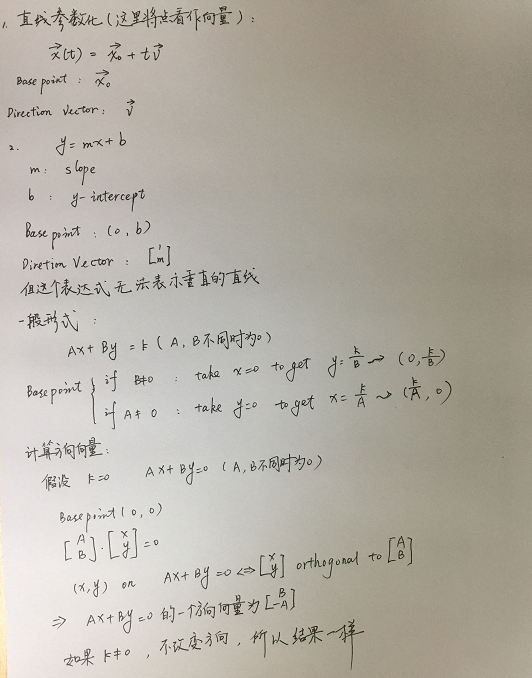 1. 直线参数化(这里将点看作向量):
x⃗(t) = x⃗₀ + t v⃗
Base point : x⃗₀
Direction Vector : v⃗
2. y = mx + b
m : slope
b : y-intercept
Base point : (0, b)
Diretion Vector : [1 m]
但这个表达式无法表示垂直的直线
一般形式 :
Ax + By = k ( A, B不同时为0 )
Base point { if B≠0 : take x=0 to get y=k/B ⇝ (0, k/B)
if A≠0 : take y=0 to get x=k/A ⇝ (k/A, 0)
计算方向向量:
假设 k=0 Ax + By=0 ( A, B不同时为0 )
Base point (0, 0)
[A B]·[x y]=0
(x,y) on Ax + By =0 <=> [x y] orthogonal to [A B]
⇒ Ax+By=0 的一个方向向量为[B -A]
如果 k≠0 , 不改变方向, 所以结果一样